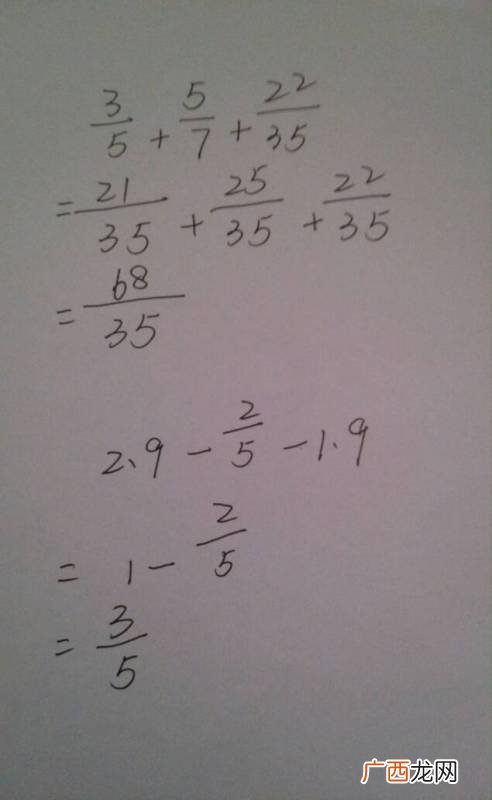 3/5 + 5/7 + 22/35
= 21/35 + 25/35 + 22/35
= 68/35
2.9 - 2/5 - 1.9
= 1 - 2/5
= 3/5
广西龙网